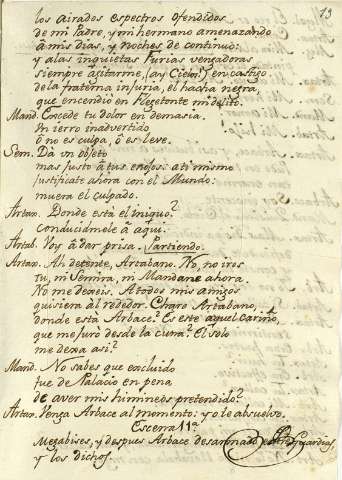 13
los airados espectros ofendidos
de mi Padre, y mi hermano amenazando
a mis dias, y noches de continuo:
y a las inquietas Furias vengadoras
siempre agitarme, (ay Cielos!) en castigo
de la fraterna injuria, el hacha negra,
que encendio en Flegetonte mi delito.
Mand. Excede tu dolor en demasia.
Un ierro inadvertido
ô no es culpa, ô es leve.
Sem. Dà un objeto
mas justo à tus enojos: a ti mismo
justificate ahora con el Mundo:
muera el culpado.
Artax. Donde està el iniquo?
conducidmele à aqui.
Artab. Voy à dar prisa. Partiendo.
Artax. Ah detente, Artabano. No, no iros
tu, ni Semira, ni Mandane ahora.
No me dexeis. A todos mis amigos
quisiera al rededor. Charo Artabano,
donde està Arbace? Es este aquel cariño,
que me juró desde la cuna? El solo
me dexa asi?
Mand. No sabes que excluido
fue de Palacio en pena
de aver mis himineos pretendido?
Artax. Venga Arbace al momento: yo le absuelvo.
Escena 11ª
Megabises, y despues Arbace desarmado entre Guardias,
y los dichos.